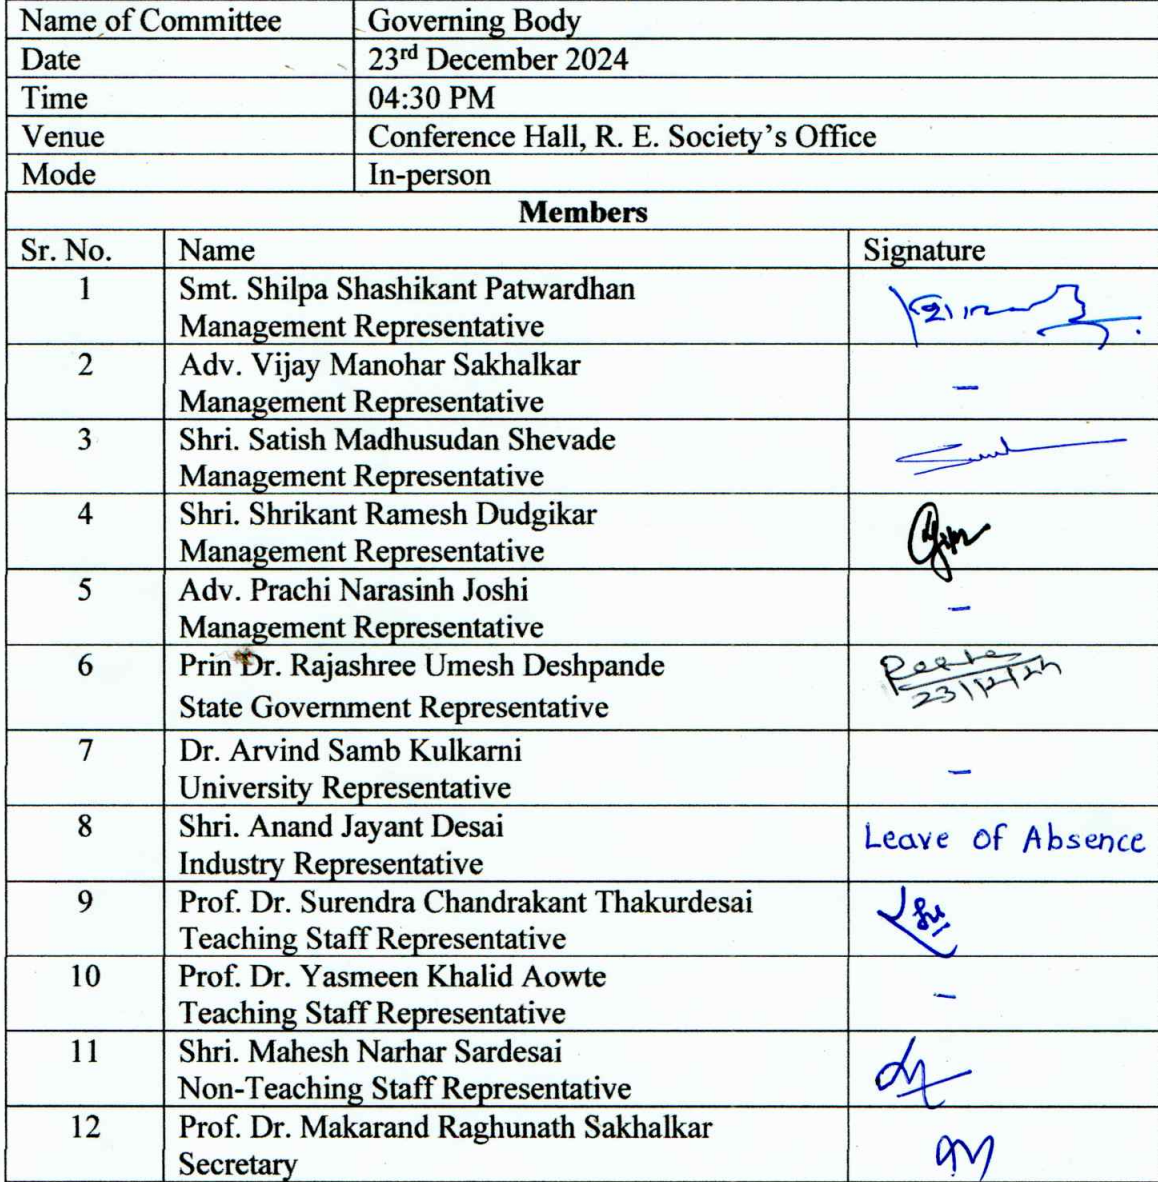 Name of Committee Governing Body
Date 23rd December 2024
Time 04:30 PM
Venue Conference Hall, R. E. Society's Office
Mode In-person
Members
Sr. No. Name Signature
1 Smt. Shilpa Shashikant Patwardhan
Management Representative
2 Adv. Vijay Manohar Sakhalkar
Management Representative –
3 Shri. Satish Madhusudan Shevade
Management Representative
4 Shri. Shrikant Ramesh Dudgikar
Management Representative
5 Adv. Prachi Narasinh Joshi
Management Representative –
6 Prin Dr. Rajashree Umesh Deshpande
State Government Representative 23/12/24
7 Dr. Arvind Samb Kulkarni
University Representative –
8 Shri. Anand Jayant Desai Leave of Absence
Industry Representative
9 Prof. Dr. Surendra Chandrakant Thakurdesai
Teaching Staff Representative
10 Prof. Dr. Yasmeen Khalid Aowte
Teaching Staff Representative –
11 Shri. Mahesh Narhar Sardesai
Non-Teaching Staff Representative
12 Prof. Dr. Makarand Raghunath Sakhalkar
Secretary